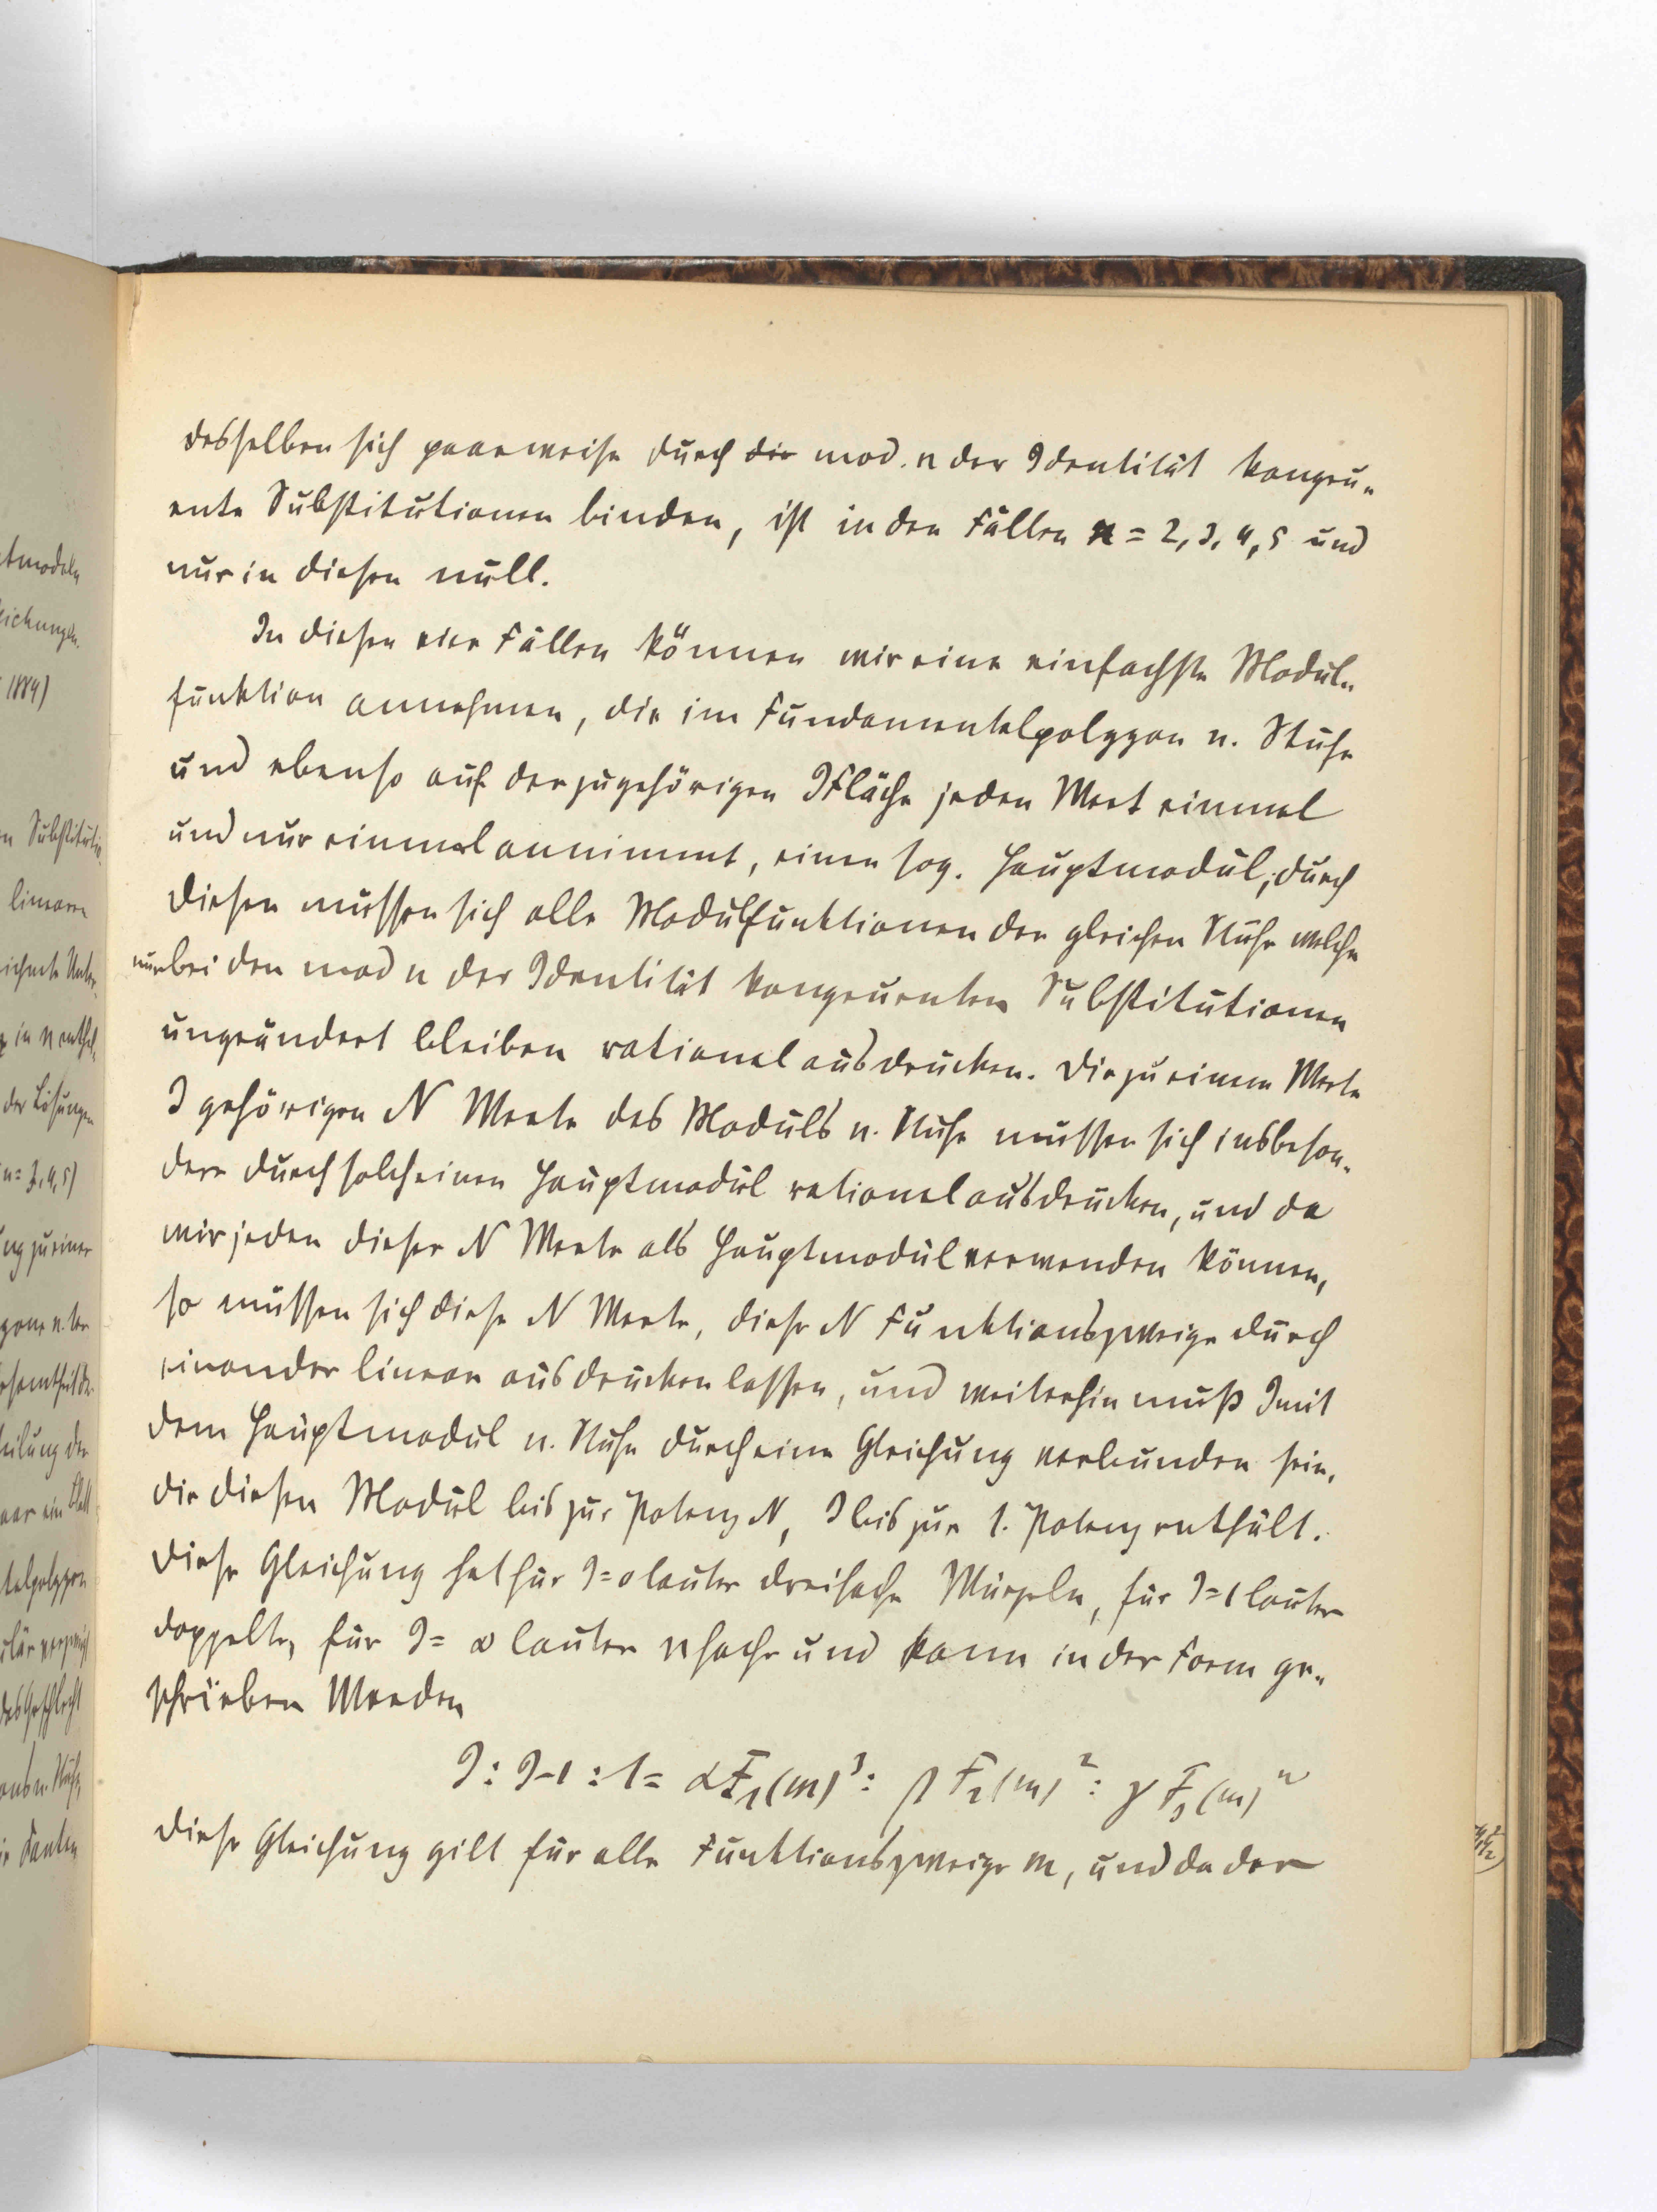 desselben sich paarweise durch die mod. n der Identität kongru-
ente Substitutionen binden, ist in den Fällen n = 2, 3, 4, 5 und
nur in diesen null.
In diesen vier Fällen können wir eine einfachste Modul-
funktion annehmen, die im Fundamentalpolygon n. Stufe
und ebenso auf der zugehörigen J Fläche jeden Wert einmal
und nur einmal annimmt, einen sog. Hauptmodul; durch
diesen müssen sich alle Modulfunktionen der gleichen Stufe welche
nur bei den mod n der Identität kongruenten Substitutionen
ungeändert bleiben rational ausdrücken. Die zu einem Werte
J gehörigen N Werte des Moduls n. Stufe müssen sich insbeson-
dere durch solch einen Hauptmodul rational ausdrücken, und da
wir jeden dieser N Werte als Hauptmodul verwenden können,
so müssen sich diese N Werte, diese N Funktionszweige durch
einander linear ausdrücken lassen, und weiterhin muß J mit
dem Hauptmodul n. Stufe durch eine Gleichung verbunden sein,
die diesen Modul bis zur Potenz N, J bis zur 1. Potenz enthält.
Diese Gleichung hat für J=0 lauter dreifache Wurzeln, für J=1 lauter
doppelte, für J= ∞ lauter n fache und kann in der Form ge-
schrieben werden
J : J-1 : 1 = α F₁(m)³ : β F₂(m)² : γ F₃(m)ⁿ
Diese Gleichung gilt für alle Funktionszweige m, und da der
tmodeln
eichungen.
1884)
n Substitutio
linearen
ichnete Unter-
in n enthal-
der Lösungen
ng zu einer
eilung der
talpolygon
das Geschlecht